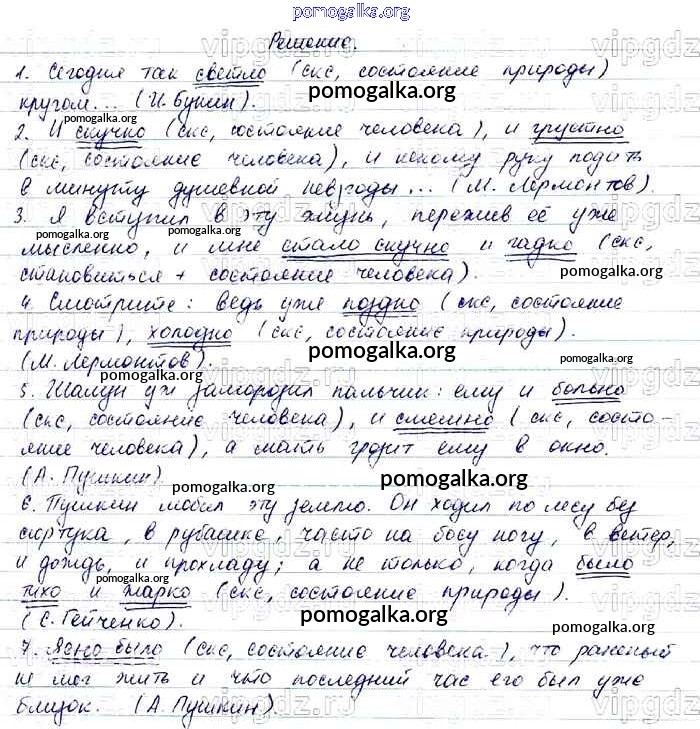 pomogalka.org
Решение.
1. Сегодня так светло (скс, состояние природы)
кругом... (И. Бунин). pomogalka.org
2. И скучно (скс, состояние человека), и грустно
(скс, состояние человека), и некому руку подать
в минуту душевной невзгоды... (М. Лермонтов).
3. Я вступил в эту жизнь, пережив её уже
мысленно, и мне стало скучно и гадко (скс,
становиться + состояние человека). pomogalka.org
4. Смотрите: ведь уже поздно (скс, состояние
природы), холодно (скс, состояние природы).
(М. Лермонтов). pomogalka.org pomogalka.org
5. Шалун уж заморозил пальчик: ему и больно
(скс, состояние человека), и смешно (скс, состо-
яние человека), а мать грозит ему в окно.
(А. Пушкин) pomogalka.org pomogalka.org
6. Пушкин любил эту землю. Он ходил по лесу без
сюртука, в рубашке, часто на босу ногу, в ветер,
и дождь, и прохладу; а не только, когда было
pomogalka.org
тихо и жарко (скс, состояние природы).
(С. Гейченко). pomogalka.org pomogalka.org
7. Ясно было (скс, состояние человека), что раненый
не мог жить и что последний час его был уже
близок. (А. Пушкин). pomogalka.org